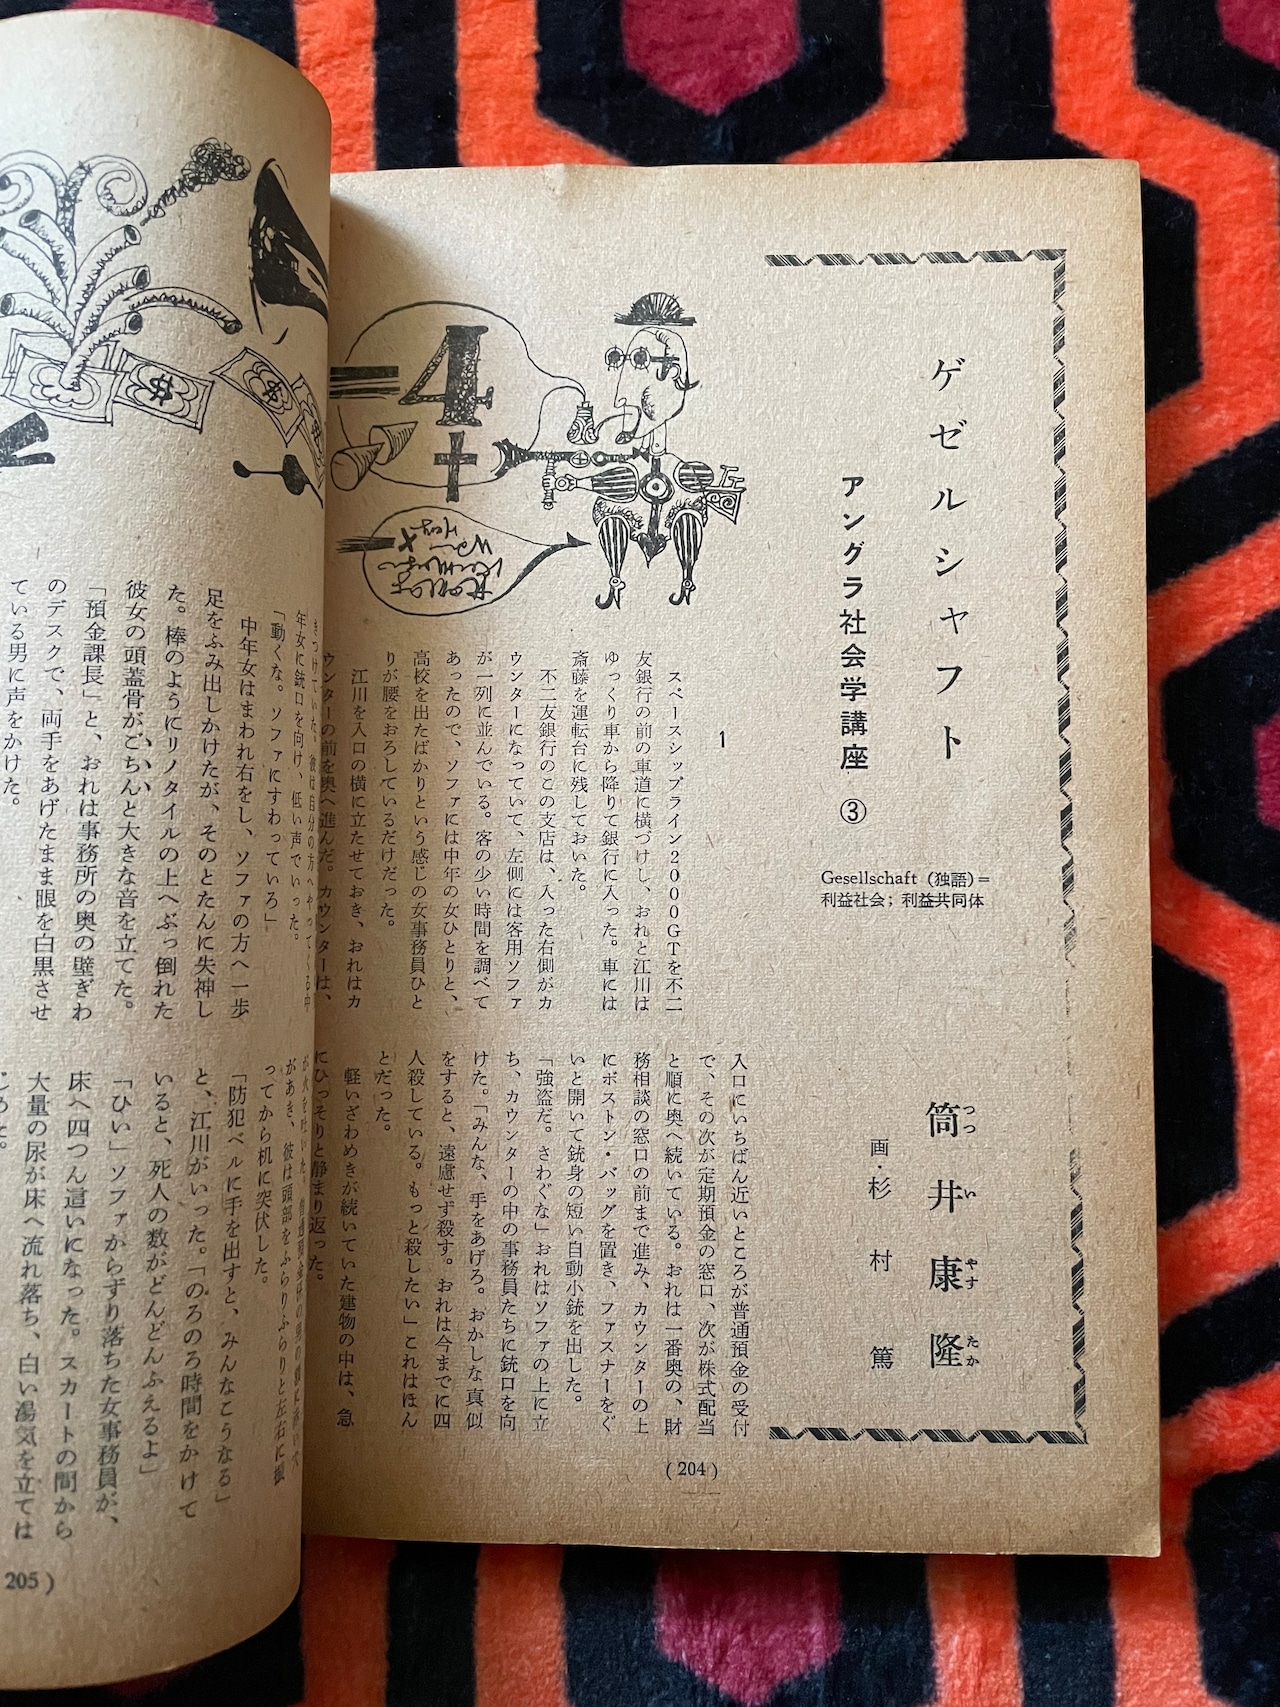 ゲゼルシャフト
アングラ社会学講座 ③
Gesellschaft (独語)=
利益社会; 利益共同体
筒井康隆
つついやすたか
画・杉村篤
=4
+
1
スペースシップライン2000GTを不二
友銀行の前の車道に横づけし、おれと江川は
ゆっくり車から降りて銀行に入った。車には
斎藤を運転台に残しておいた。
不二友銀行のこの支店は、入った右側がカ
ウンターになっていて、左側には客用ソファ
が一列に並んでいる。客の少い時間を調べて
あったので、ソファには中年の女ひとりと、
高校を出たばかりという感じの女事務員ひと
りが腰をおろしているだけだった。
江川を入口の横に立たせておき、おれはカ
ウンターの前を奥へ進んだ。カウンターは、
入口にいちばん近いところが普通預金の受付
で、その次が定期預金の窓口、次が株式配当
と順に奥へ続いている。おれは一番奥の、財
務相談の窓口の前まで進み、カウンターの上
にボストン・バッグを置き、ファスナーをぐ
いと開いて銃身の短い自動小銃を出した。
「強盗だ。さわぐな」おれはソファの上に立
ち、カウンターの中の事務員たちに銃口を向
けた。「みんな、手をあげろ。おかしな真似
をすると、遠慮せず殺す。おれは今までに四
人殺している。もっと殺したい」これはほん
とだった。
軽いざわめきが続いていた建物の中は、急
にひっそりと静まり返った。
(204)
年女に銃口を向け、低い声でいった。
「動くな。ソファにすわっていろ」
中年女はまわれ右をし、ソファの方へ一歩
足をふみ出しかけたが、そのとたんに失神し
た。棒のようにリノタイルの上へぶっ倒れた
彼女の頭蓋骨がごちんと大きな音を立てた。
「預金課長」と、おれは事務所の奥の壁ぎわ
のデスクで、両手をあげたまま眼を白黒させ
ている男に声をかけた。
があき、彼は頭部をふらりふらりと左右に振
ってから机に突伏した。
「防犯ベルに手を出すと、みんなこうなる」
と、江川がいった。「のろのろ時間をかけて
いると、死人の数がどんどんふえるよ」
「ひい」ソファからずり落ちた女事務員が、
床へ四つん這いになった。スカートの間から
大量の尿が床へ流れ落ち、白い湯気を立ては
じめた。
205)